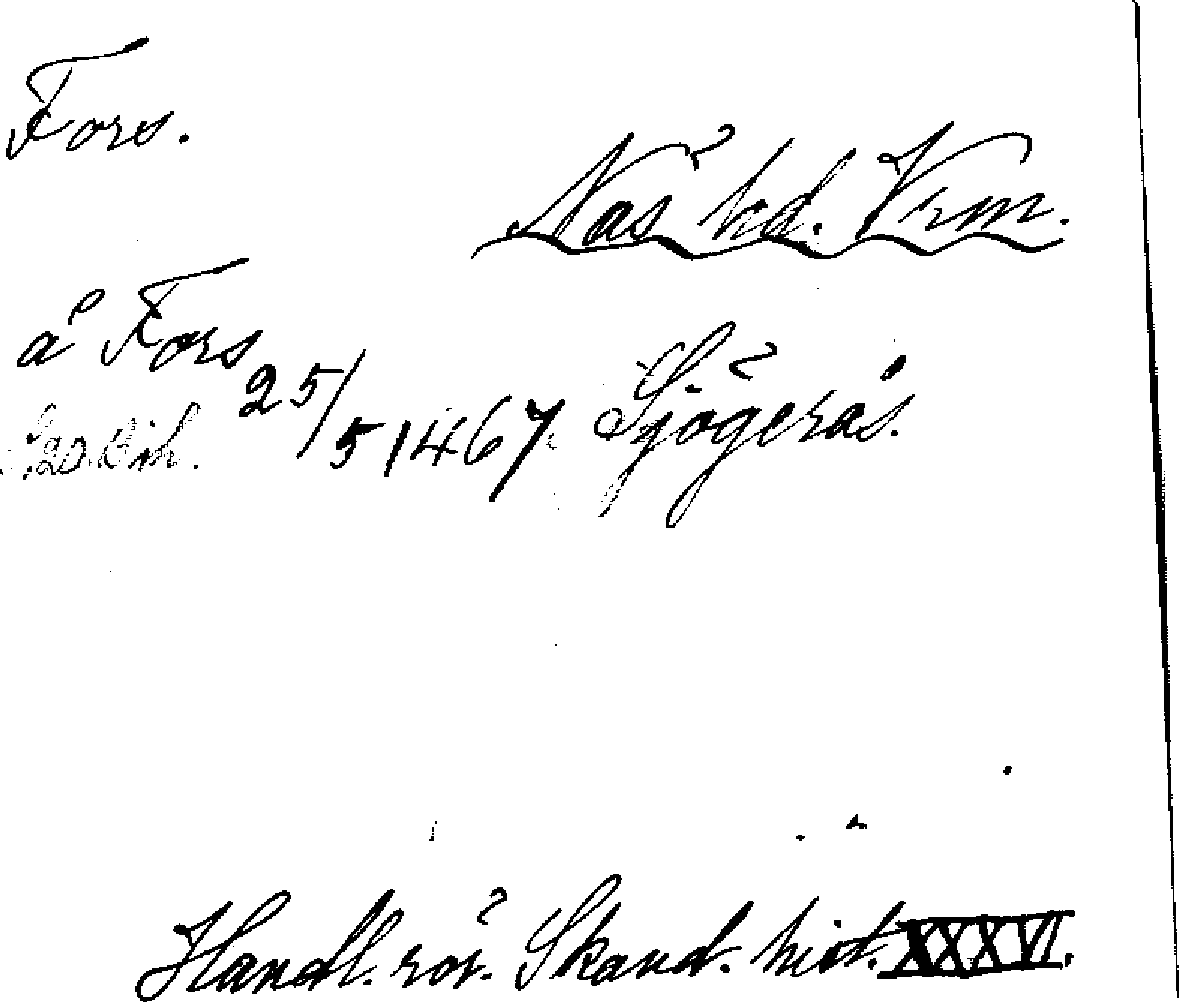 Fors.
Näs hd. Vrm.
å Fors
25/5 1467. Sjögerås.
Handl. rör. Skand. hist. XXXVI.